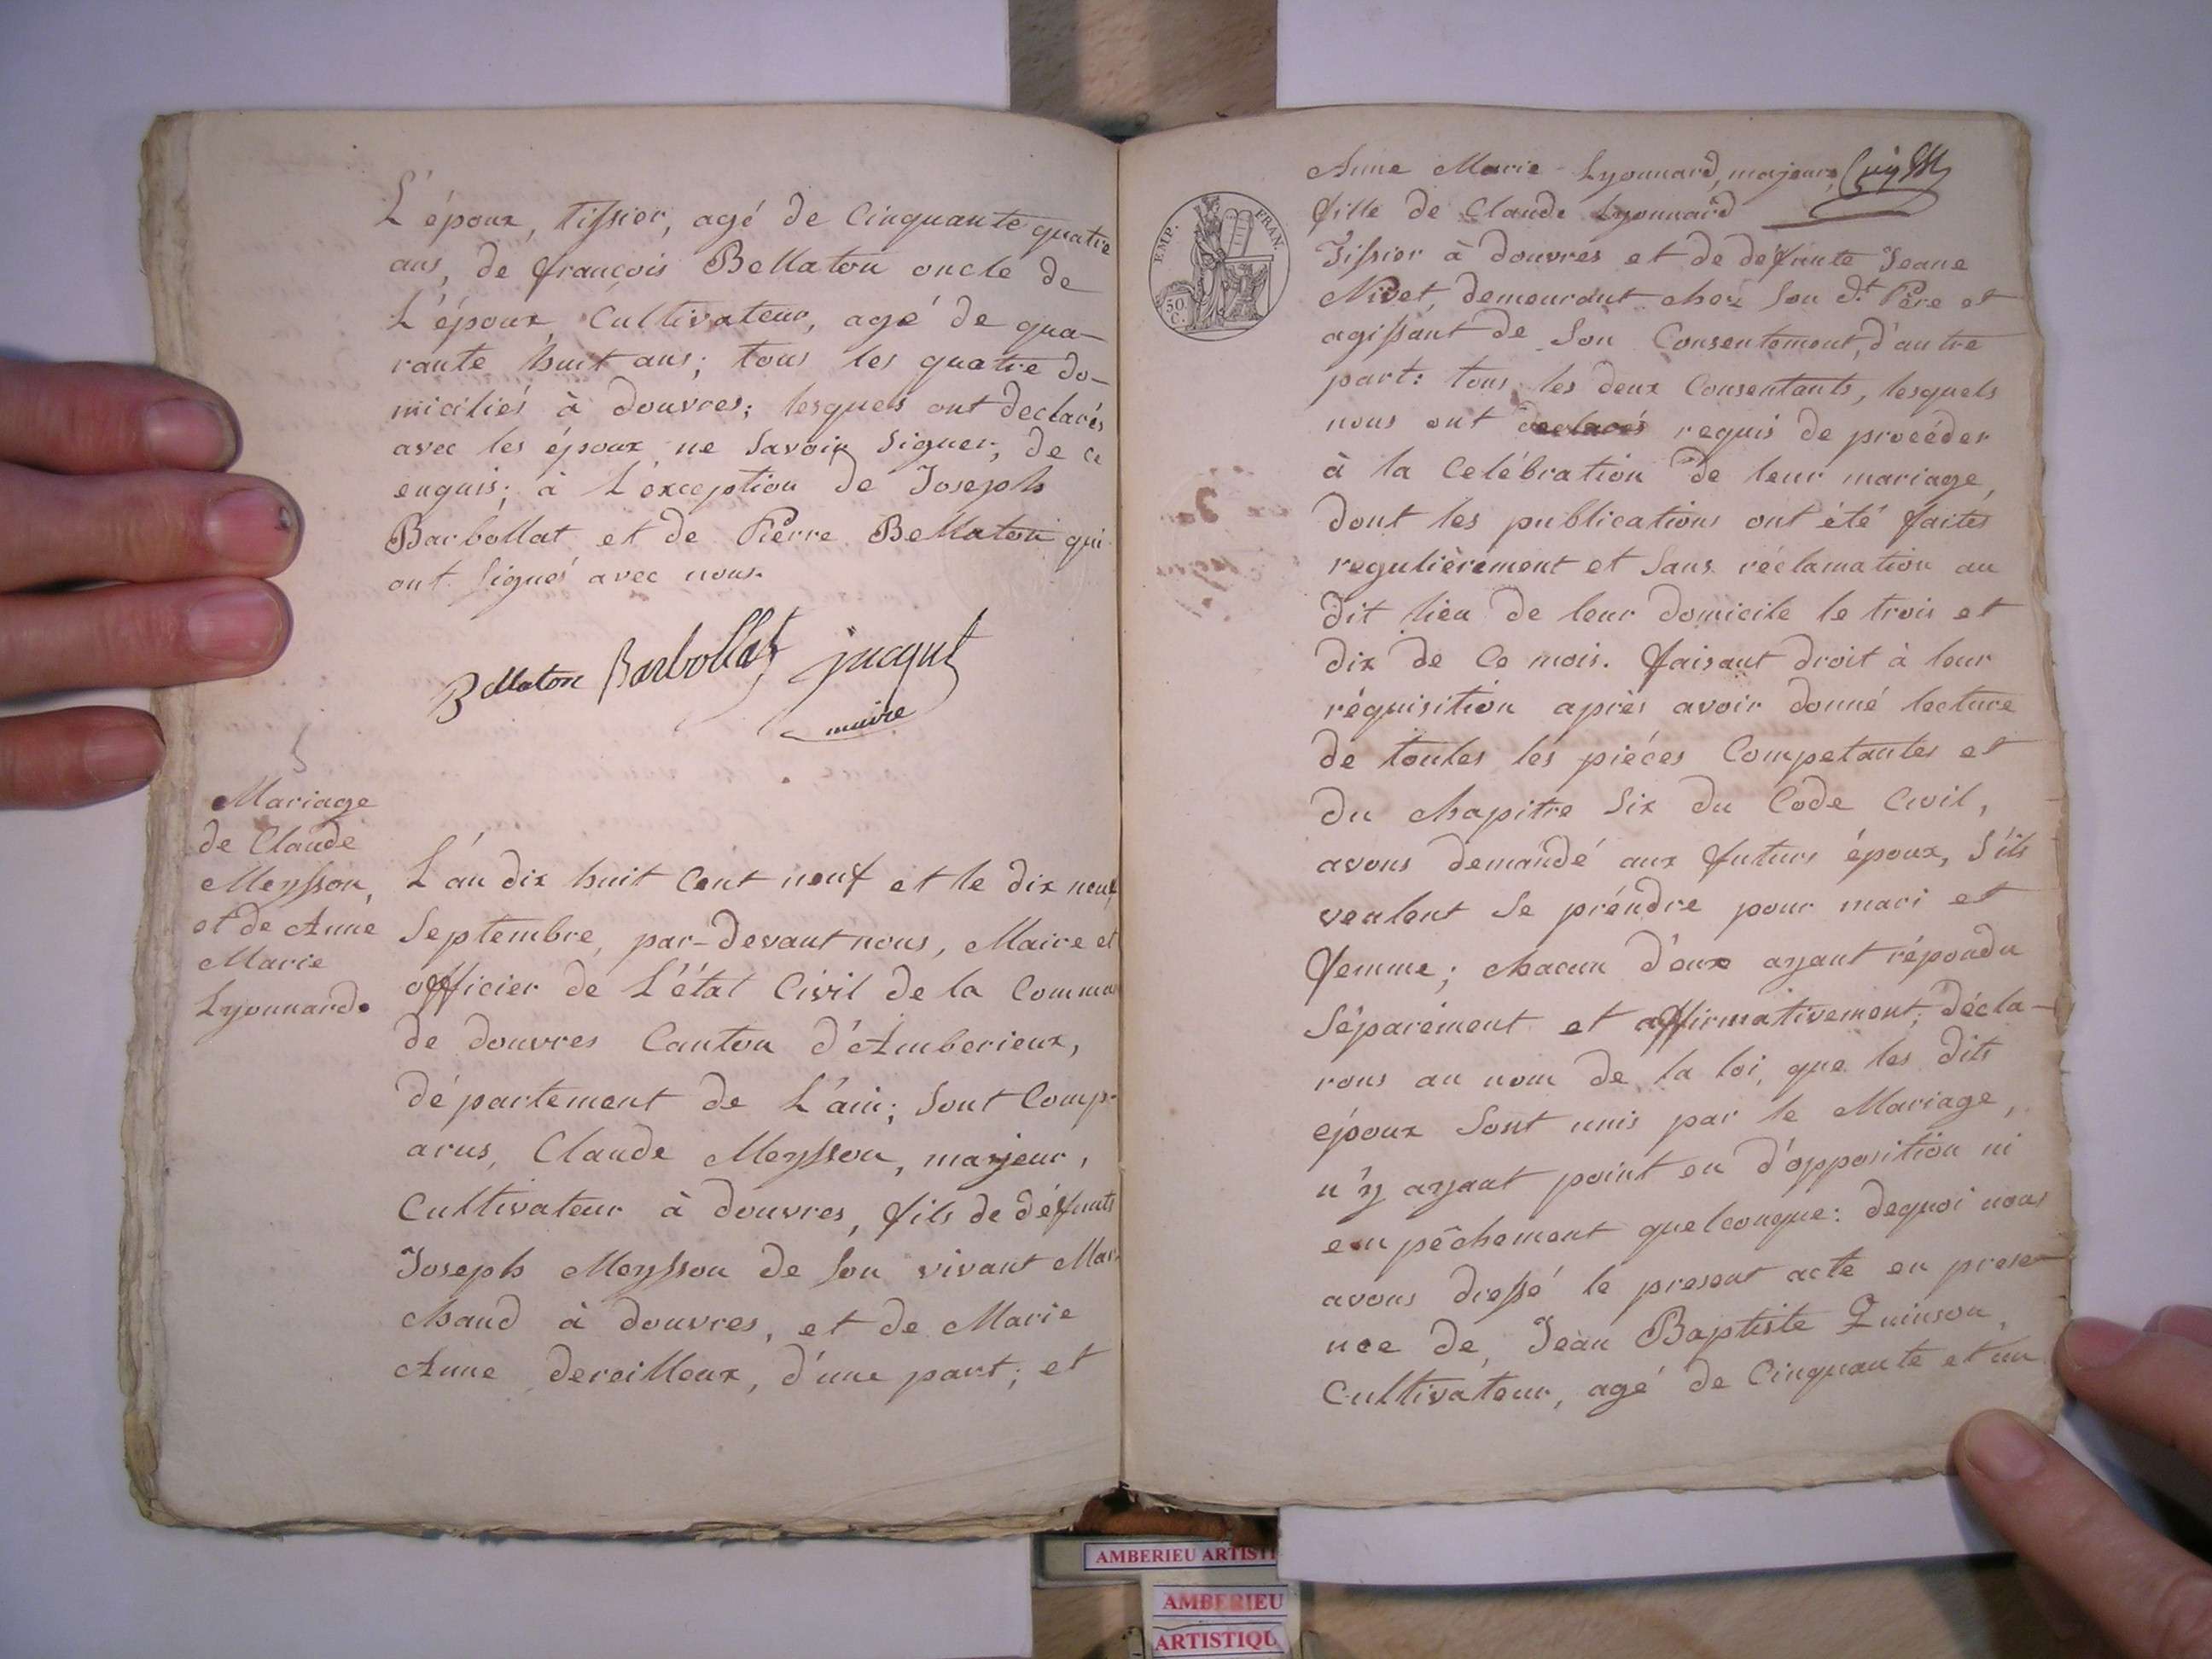 L'époux, tissier, agé de Cinquante quatre
ans, de françois Bellaton oncle de
L'époux, Cultivateur, agé de qua-
rante huit ans; tous les quatre do-
miciliés à douvres; lesquels ont declarés
avec les époux ne Savoir Signer, de ce
enquis; à L'éxception de Joseph
Barbollat et de Pierre Bellaton qui
ont Signés avec nous.
Bellaton Barbollat jucquet
maire
Mariage
de Claude
Meysson,
et de Anne
Marie
Lyonnard.
L'an dix huit Cent neuf et le dix neuf
Septembre, par-devant nous, Maire et
officier de L'état Civil de la Commu
de douvres Canton d'Amberieux,
département de L'ain; Sont Comp-
arus, Claude Meysson, majeur,
Cultivateur à douvres, fils de défunts
Joseph Meysson de Son vivant Mar-
chand à douvres, et de Marie
Anne dereilleux, d'une part; et
EMP. FRAN.
50 C.
Anne Marie Lyonnard, majeure,
fille de Claude Lyonnard
Tissier à douvres et de défunte Jeane
Nivet, demeurant chez Son dt. Père et
agissant de Son Consentement, d'autre
part: tous les deux Consentants, lesquels
nous ont declarés requis de procéder
à la Celébration de leur mariage,
dont les publications ont été faites
regulièrement et Sans réclamation au
dit lieu de leur domicile le trois et
dix de Ce mois. faisant droit à leur
réquisition après avoir donné lecture
de toutes les pièces Competantes et
du chapitre Six du Code Civil,
avons demandé aux futurs époux, S'ils
veulent Se préndre pour mari et
femme; chacun d'eux ayant répondu
Séparément et affirmativement; décla-
rons au nom de la loi, que les dits
époux Sont unis par le Mariage,
n'y ayant point eu d'opposition ni
empêchement quelconque: dequoi nous
avons dressé le present acte en prese-
nce de, Jean Baptiste Quinson,
Cultivateur, agé de Cinquante et un
AMBERIEU ARTISTI
AMBERIEU
ARTISTIQU